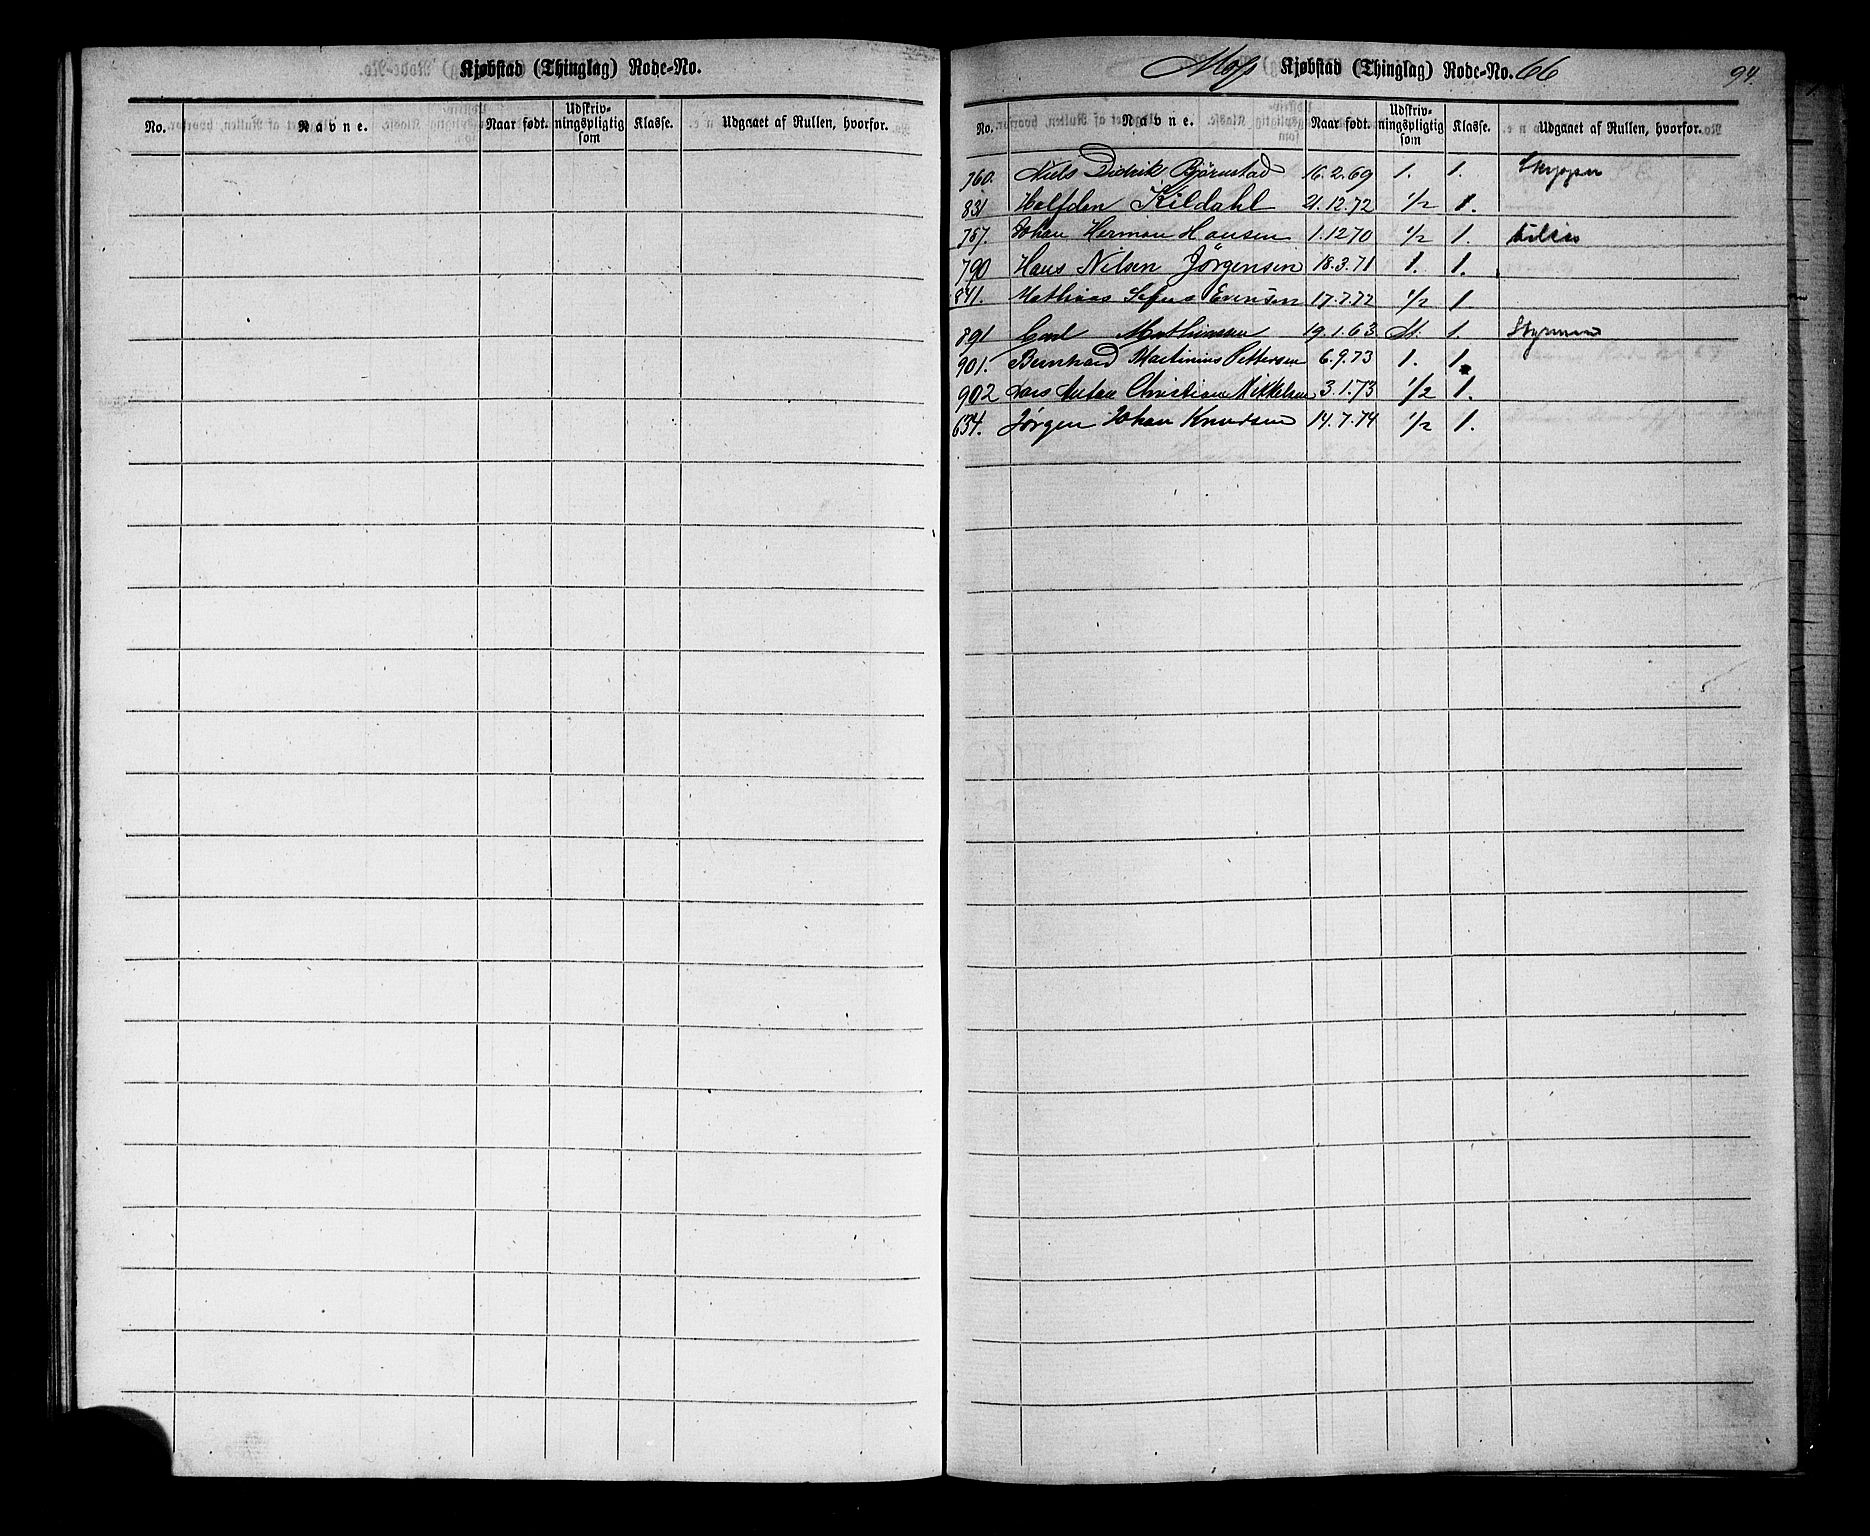 Kjøbstad (Thinglag) Rode-No.
No. Navne. Naar født. Udskriv-ningspligtig som Klasse. Udgaaet af Rullen, hvorfor.
Moss Kjøbstad (Thinglag) Rode-No. 66 94.
No. Navne. Naar født. Udskriv-ningspligtig som Klasse. Udgaaet af Rullen, hvorfor.
760. Niels Didrik Bjørnstad 16.2.69 1. 1. Skipper
831 Halfden Kildahl 21.12.72 1/2 1.
767. Johan Herman Hansen 1.12 70 1/2 1.
790 Hans Nilsen Jørgensen 18.3.71 1. 1.
841. Mathias Sefus Evensen 17.7.72 1/2 1.
891 Carl Mathiesen 19.1.63 St. 1. Styrmand
901. Bernhard Martinius Pettersen 6.9.73 1. 1.
902 Lars Anton Christian Mikkelsen 3.1.73 1/2 1.
634. Jørgen Johan Knudsen 14.7.74 1/2 1.